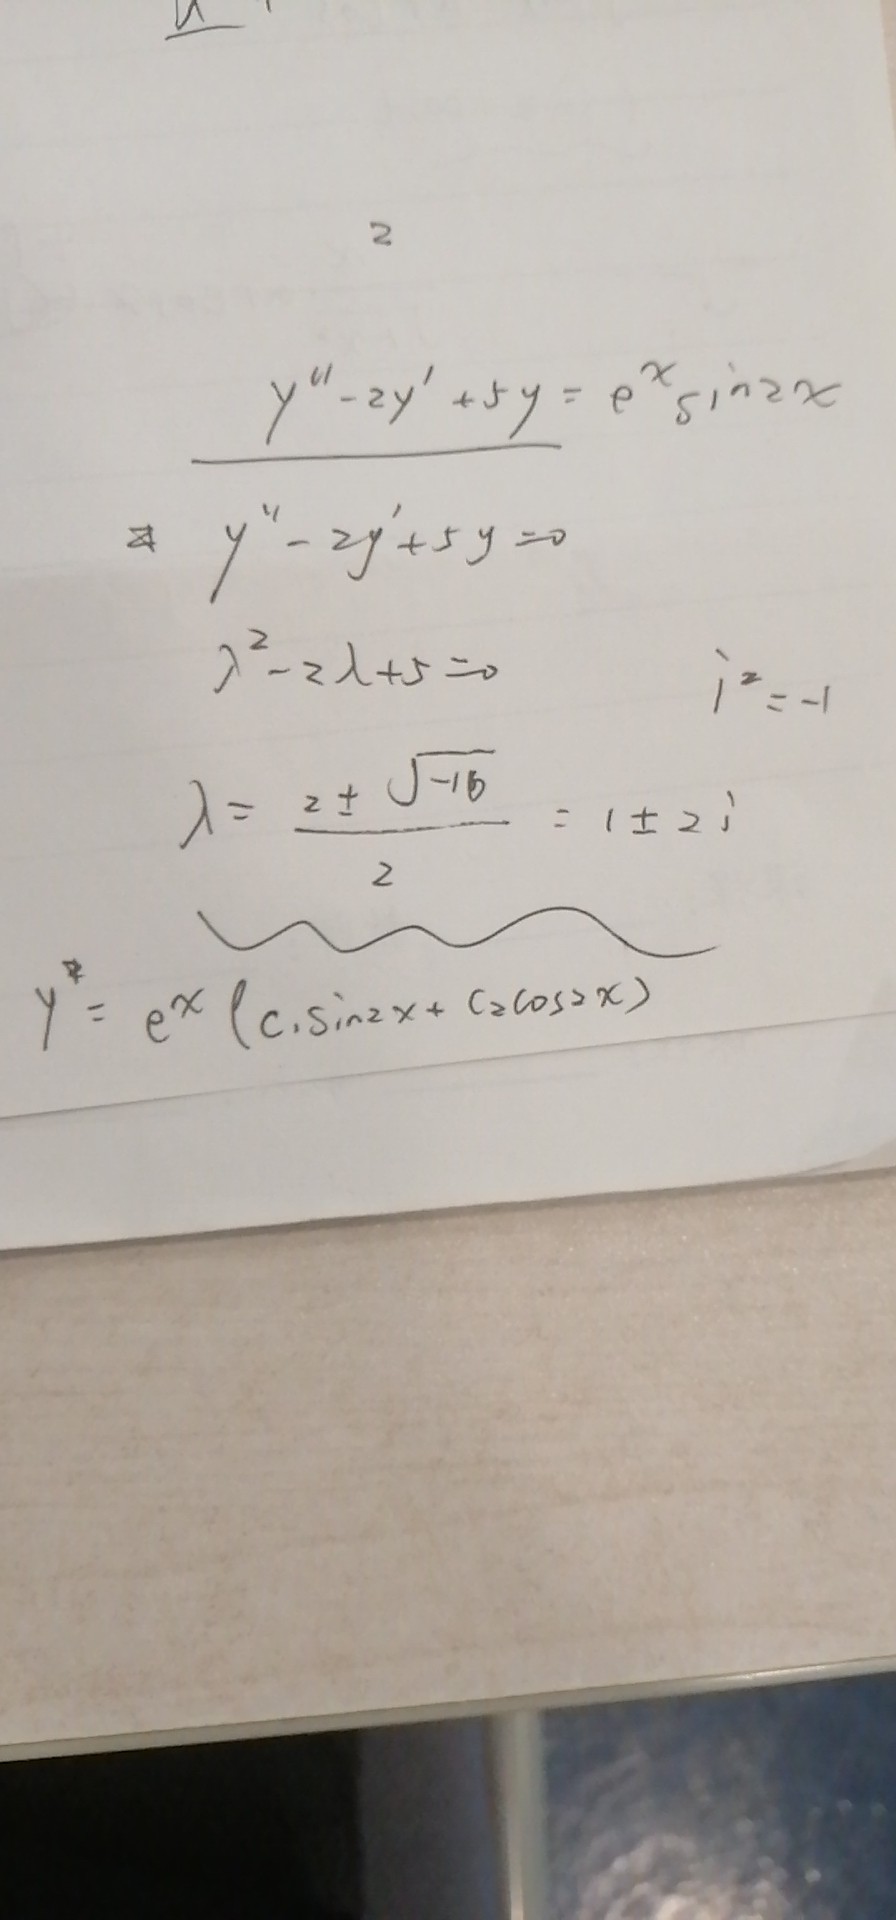 2
y'' - 2y' + 5y = e^x sin2x
y'' - 2y' + 5y = 0
λ² - 2λ + 5 = 0
i² = -1
λ = (2 ± √-16) / 2 = 1 ± 2i
y* = e^x (C₁sin2x + C₂cos2x)